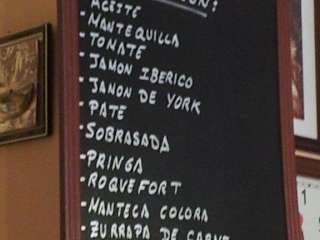 - ACEITE
- MANTEQUILLA
- TOMATE
- JAMON IBERICO
- JAMON DE YORK
- PATE
- SOBRASADA
- PRINGA
- ROQUEFORT
- MANTECA COLORA
- ZURRAPA DE CARNE